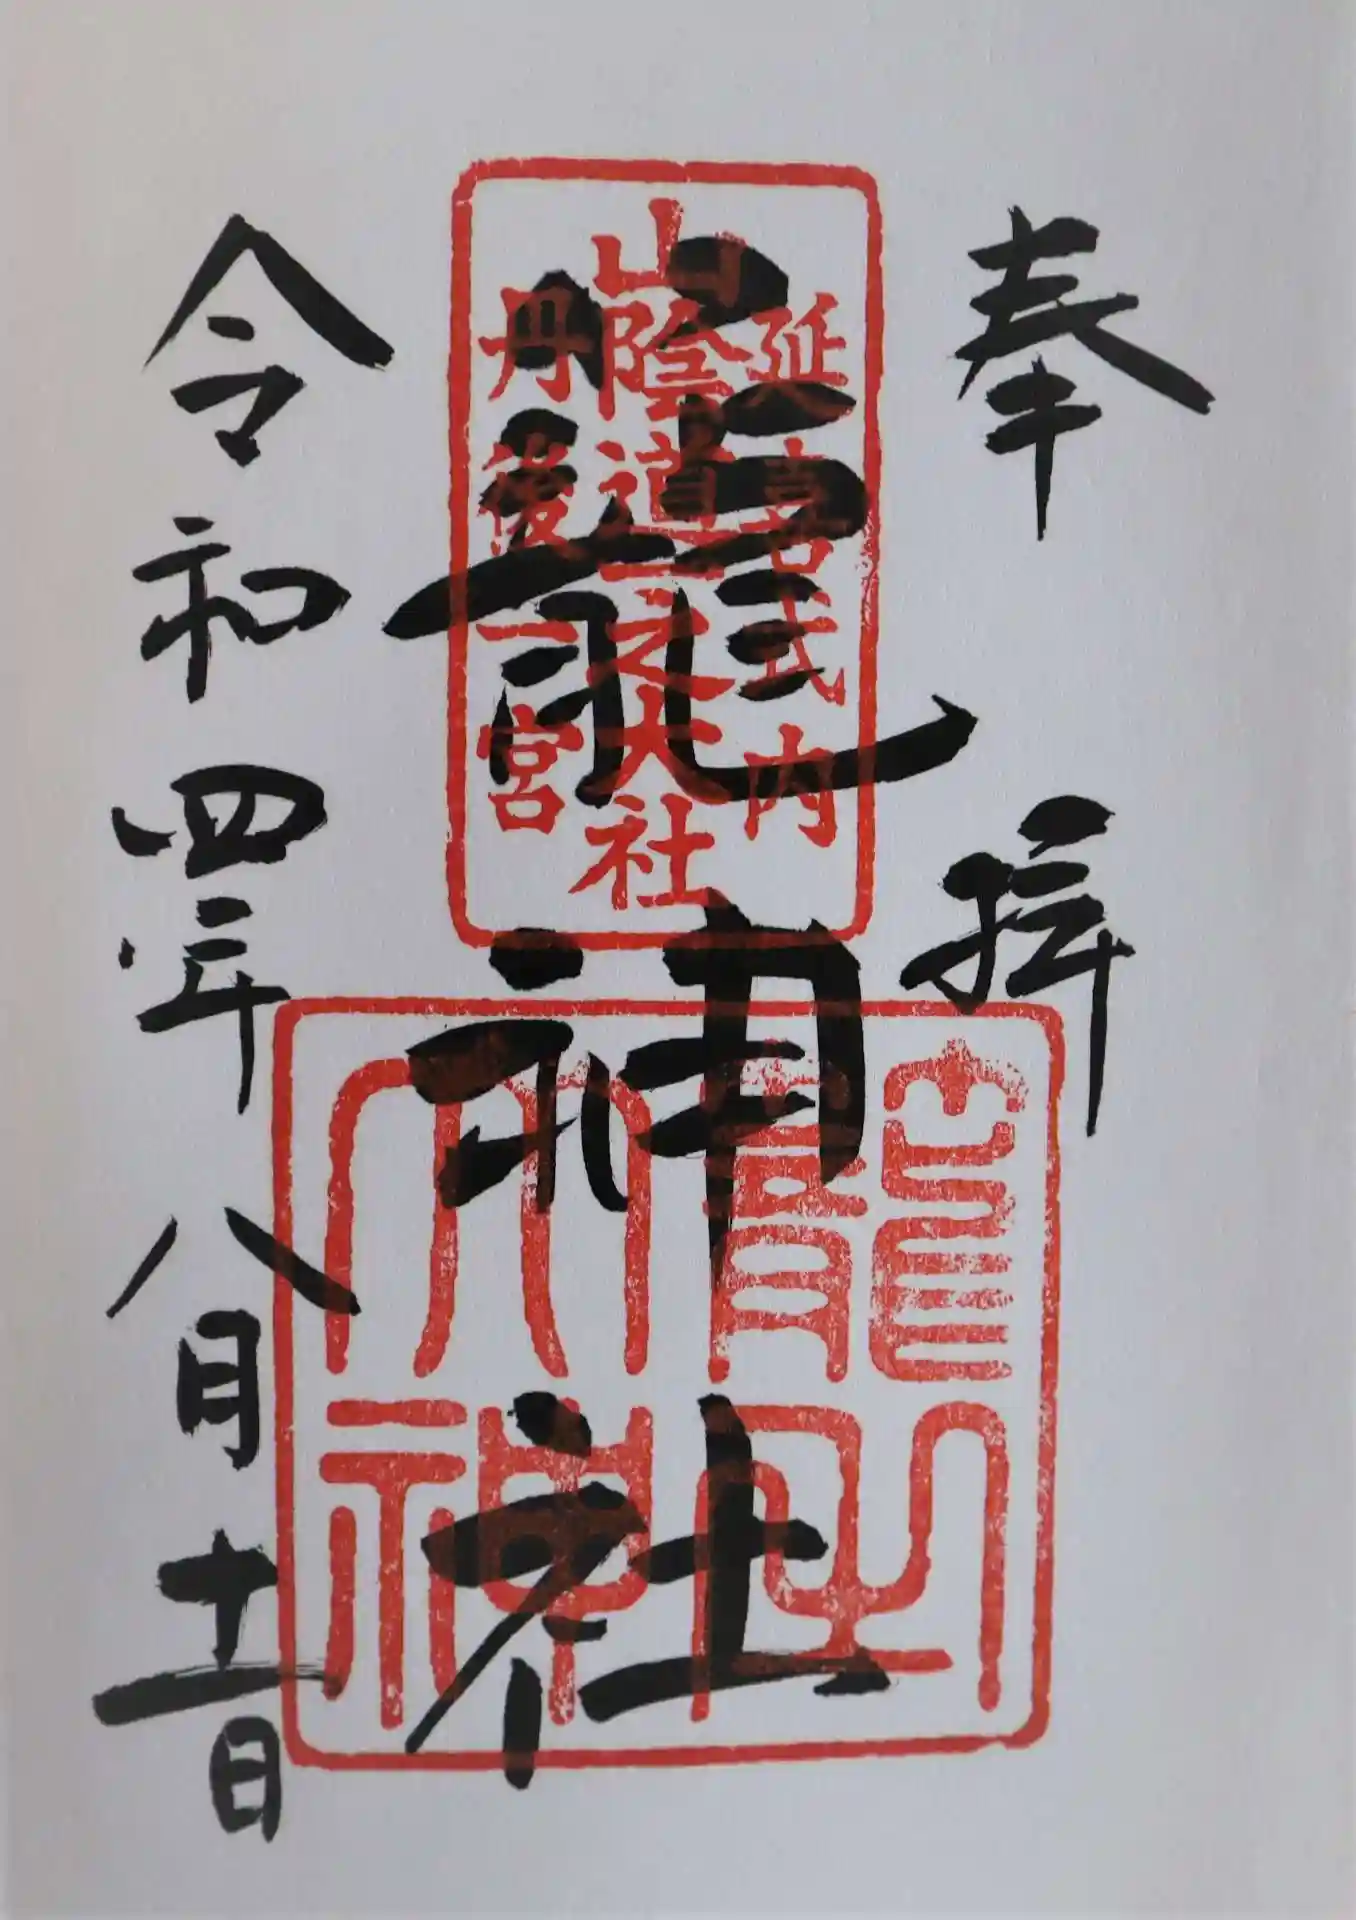 奉拝
延喜式内
山陰道一之大社
丹後一宮
籠神社
籠之大神
令和四年八月十一日